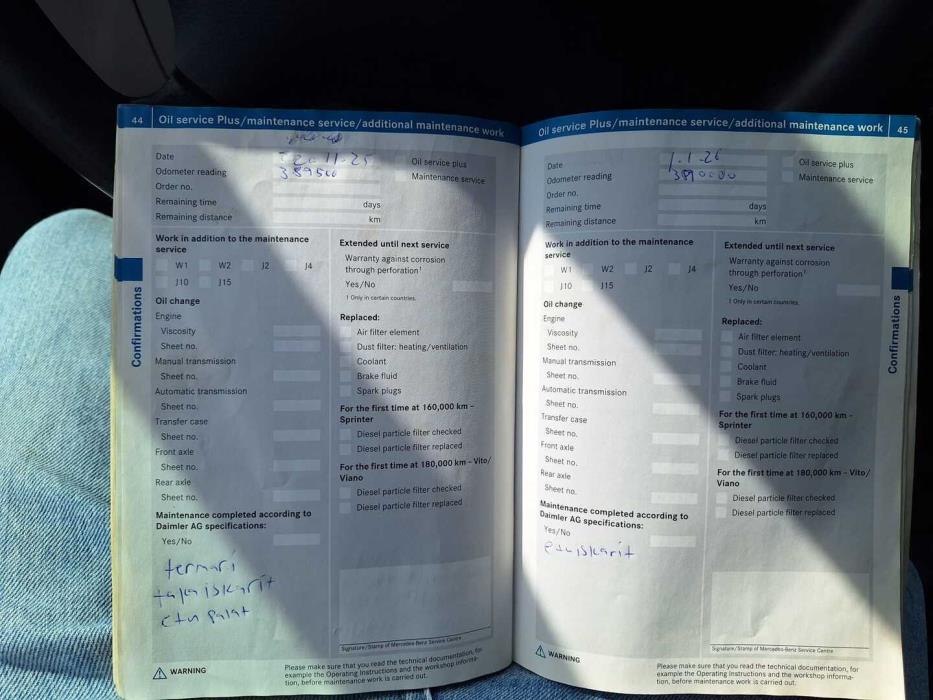 44 Oil service Plus/maintenance service/additional maintenance work
Date 20.11-25 Oil service plus
Odometer reading 389500 Maintenance service
Order no.
Remaining time days
Remaining distance km
Work in addition to the maintenance
service
W1 W2 J2 J4
J10 J15
Oil change
Engine
Viscosity
Sheet no.
Manual transmission
Sheet no.
Automatic transmission
Sheet no.
Transfer case
Sheet no.
Front axle
Sheet no.
Rear axle
Sheet no.
Maintenance completed according to
Daimler AG specifications:
Yes/No
ternari
takaiskarit
etu palat
Extended until next service
Warranty against corrosion
through perforation¹
Yes/No
1 Only in certain countries.
Replaced:
Air filter element
Dust filter: heating/ventilation
Coolant
Brake fluid
Spark plugs
For the first time at 160,000 km –
Sprinter
Diesel particle filter checked
Diesel particle filter replaced
For the first time at 180,000 km – Vito/
Viano
Diesel particle filter checked
Diesel particle filter replaced
Signature/Stamp of Mercedes-Benz Service Centre
WARNING
Please make sure that you read the technical documentation, for
example the Operating Instructions and the workshop informa-
tion, before maintenance work is carried out.
Confirmations
Oil service Plus/maintenance service/additional maintenance work 45
Date 1.1-26 Oil service plus
Odometer reading 390000 Maintenance service
Order no.
Remaining time days
Remaining distance km
Work in addition to the maintenance
service
W1 W2 J2 J4
J10 J15
Oil change
Engine
Viscosity
Sheet no.
Manual transmission
Sheet no.
Automatic transmission
Sheet no.
Transfer case
Sheet no.
Front axle
Sheet no.
Rear axle
Sheet no.
Maintenance completed according to
Daimler AG specifications:
Yes/No
etuiskarit
Extended until next service
Warranty against corrosion
through perforation¹
Yes/No
1 Only in certain countries.
Replaced:
Air filter element
Dust filter: heating/ventilation
Coolant
Brake fluid
Spark plugs
For the first time at 160,000 km –
Sprinter
Diesel particle filter checked
Diesel particle filter replaced
For the first time at 180,000 km – Vito/
Viano
Diesel particle filter checked
Diesel particle filter replaced
Signature/Stamp of Mercedes-Benz Service Centre
WARNING
Please make sure that you read the technical documentation, for
example the Operating Instructions and the workshop informa-
tion, before maintenance work is carried out.
Confirmations